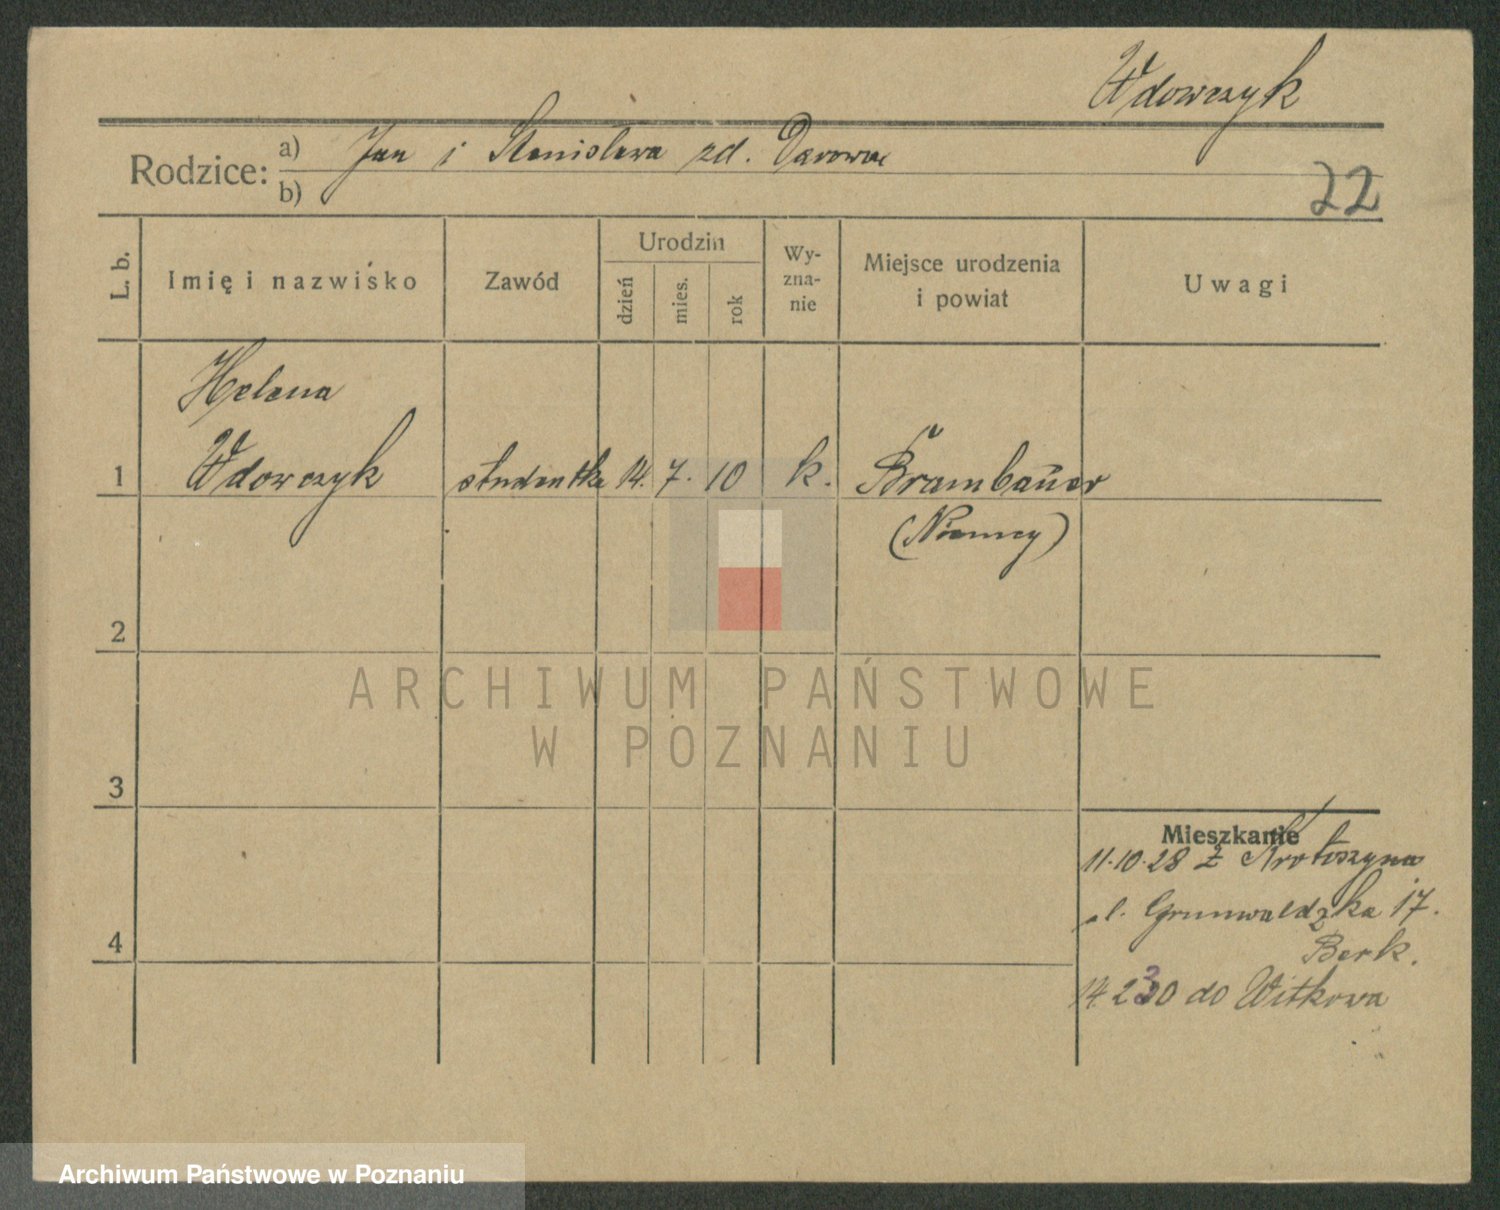 Wdowczyk
Rodzice: a) Jan i Stanisława zd.
b)
22
L. b.
Imię i nazwisko
Zawód
Urodzin
dzień
mies.
rok
Wy-
zna-
nie
Miejsce urodzenia
i powiat
Uwagi
Helena
1 Wdowczyk studentka 14. 7. 10 k. Brambauer
(Niemcy)
2
ARCHIWUM PAŃSTWOWE
W POZNANIU
3
Mieszkanie
11.10.28 z Krotoszyna
ul. Grunwaldzka 17.
Berk.
14 2 30 do Witkowa
4
Archiwum Państwowe w Poznaniu